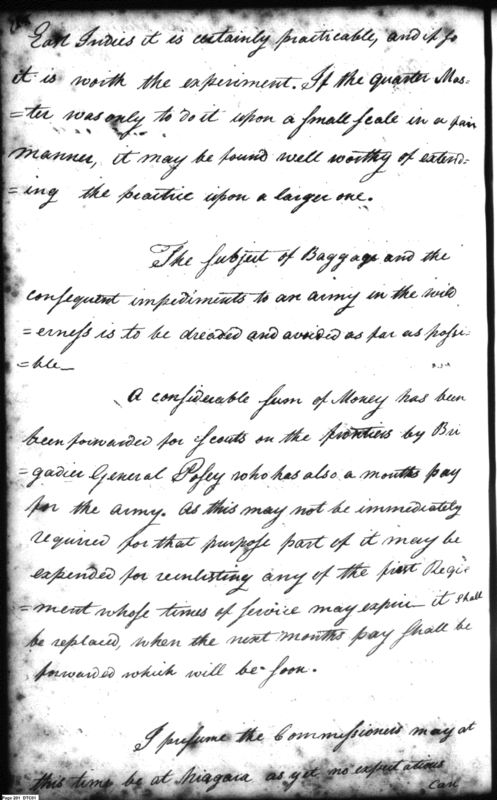 East Indies it is certainly practicable, and if so
it is worth the experiment. If the quarter Mas-
=ter was only to do it upon a small scale in a fair
manner, it may be found well worthy of extend-
=ing the practice upon a larger one.
The subject of Baggage and the
consequent impediments to an army in the wild
=erness is to be dreaded and avoided as far as possi-
=ble_
A considerable sum of Money has been
been forwarded for scouts on the frontiers by Bri
=gadier General Posey who has also a months pay
for the army. As this may not be immediately
required for that purpose part of it may be
expended for reinlisting any of the first Regi
=ment whose times of service may expire it shall
be replaced, when the next months pay shall be
forwarded which will be soon.
I presume the Commissioners may at
this time be at Niagara as yet no expectations
can
Page 201 DTC01